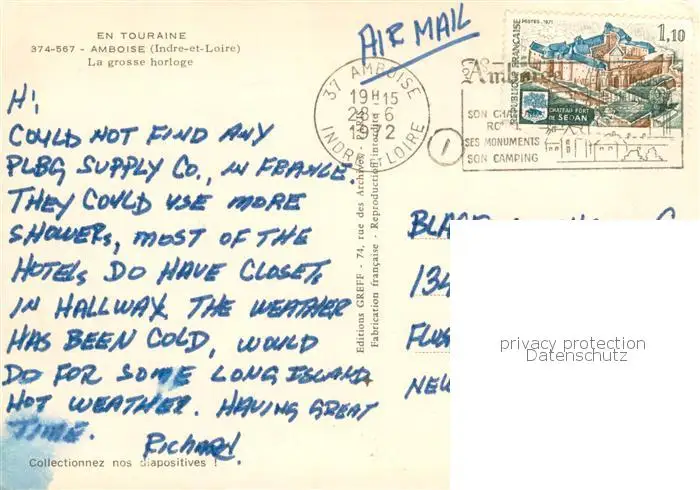 EN TOURAINE
374-567 - AMBOISE (Indre-et-Loire)
La grosse horloge
AIR MAIL
POSTES 1971
1,10
REPUBLIQUE FRANÇAISE
CHATEAU FORT
DE SEDAN
37 AMBOISE
19H15
28-6
1972
INDRE ET LOIRE
1
Amboise
SON CHA
RO
SES MONUMENTS
SON CAMPING
HI,
COULD NOT FIND ANY
PLBG SUPPLY CO., IN FRANCE.
THEY COULD USE MORE
SHOWERS, MOST OF THE
HOTELS DO HAVE CLOSETS
IN HALLWAY. THE WEATHER
HAS BEEN COLD, WOULD
DO FOR SOME LONG ISLAND
HOT WEATHER. HAVING GREAT
TIME.
Richard.
Collectionnez nos diapositives !
Editions GREFF - 74, rue des Archives -
Fabrication française - Reproduction interdite
134
NEW
privacy protection
Datenschutz